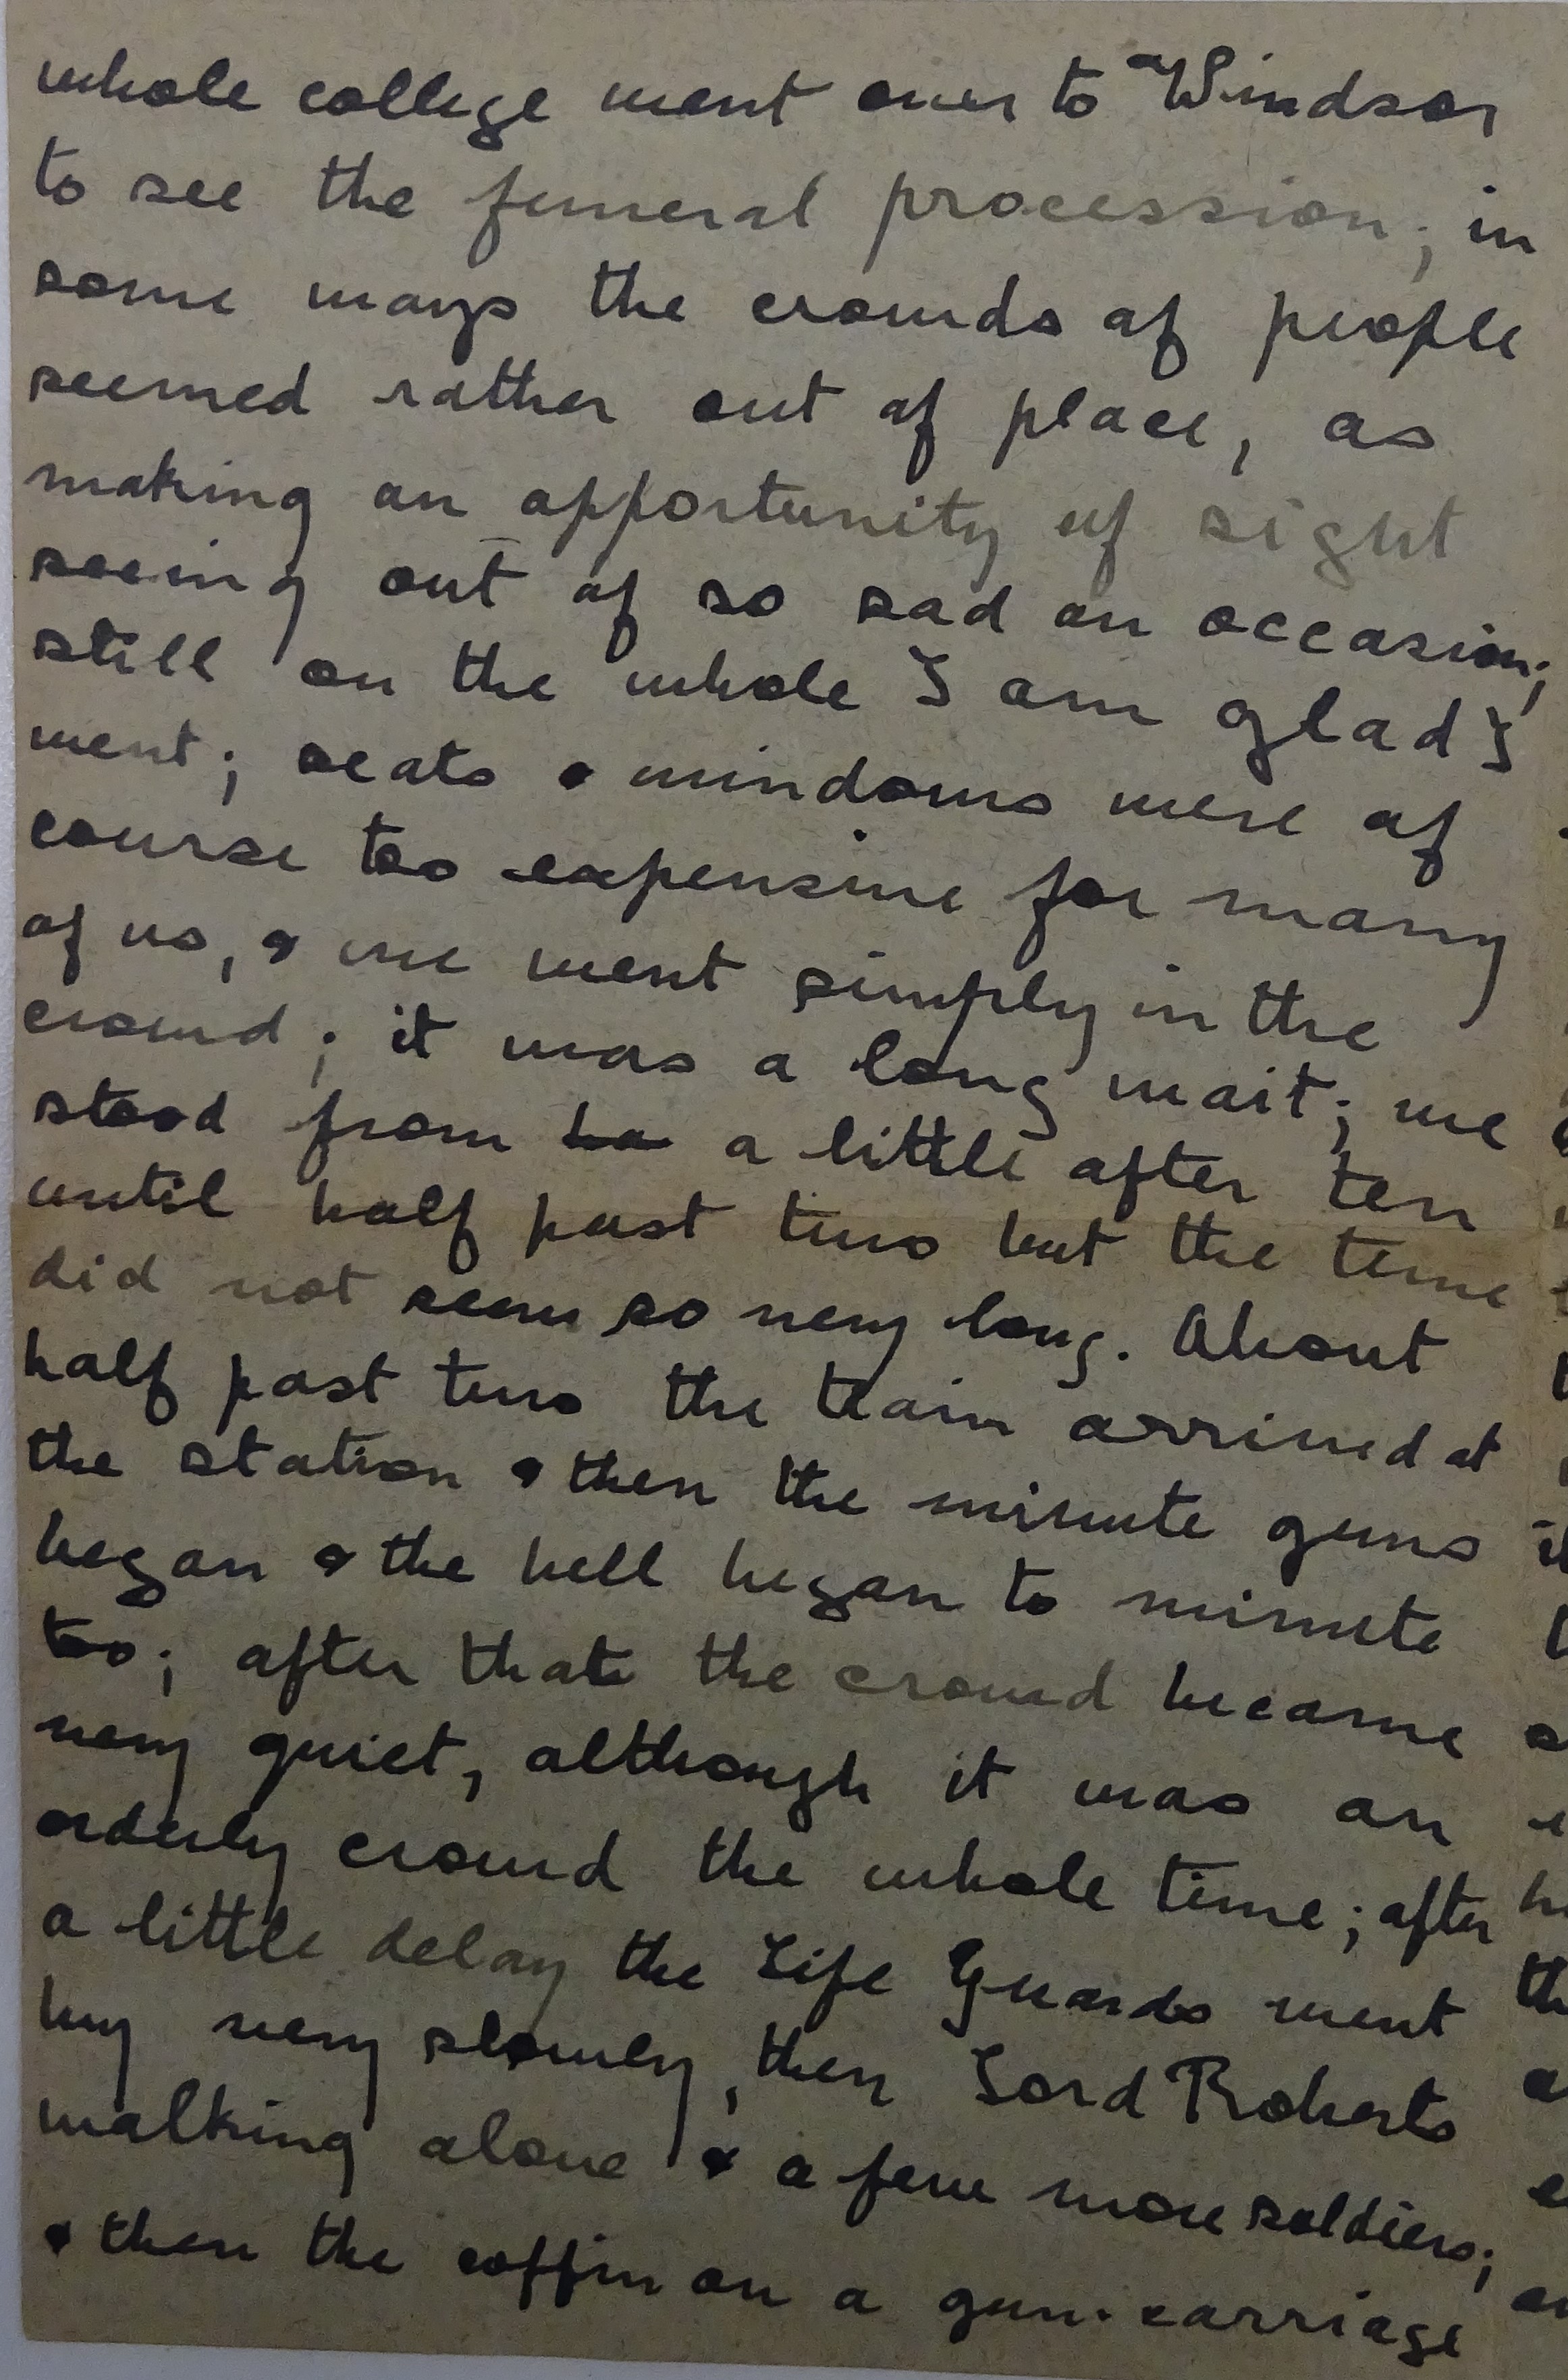 whole college went over to Windsor
to see the funeral procession; in
some ways the crowds of people
seemed rather out of place, as
making an opportunity of sight
seeing out of so sad an occasion;
still on the whole I am glad I
went; seats & windows were of
course too expensive for many
of us, & we went simply in the
crowd; it was a long wait; we
stood from a little after ten
until half past two but the time
did not seem so very long. About
half past two the train arrived at
the station & then the minute guns
began & the bell began to minute
too; after that the crowd became
very quiet, although it was an
orderly crowd the whole time; after
a little delay the Life Guards went
by very slowly, then Lord Roberts
walking alone & a few more soldiers;
& then the coffin on a gun-carriage